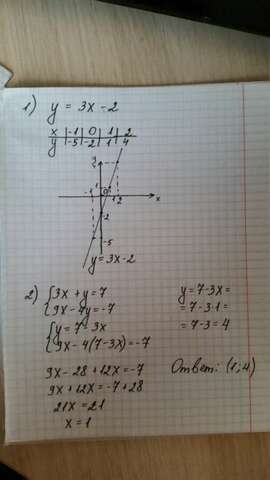 1) y = 3x - 2
x | -1 | 0 | 1 | 2
y | -5 | -2 | 1 | 4
y
-1 0 1 2 x
1
-2
-5
y = 3x - 2
2) { 3x + y = 7
9x - 4y = -7
{ y = 7 - 3x
9x - 4(7-3x) = -7
9x - 28 + 12x = -7
9x + 12x = -7 + 28
21x = 21
x = 1
y = 7 - 3x =
= 7 - 3·1 =
= 7 - 3 = 4
Ответ: (1; 4)